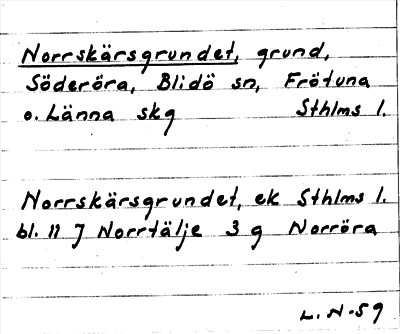 Norrskärsgrundet, grund,
Söderöra, Blidö sn, Frötuna
o. Länna skg Sthlms l.
Norrskärsgrundet, ek Sthlms l.
bl. 11 J Norrtälje 3 g Norröra
L. N-59